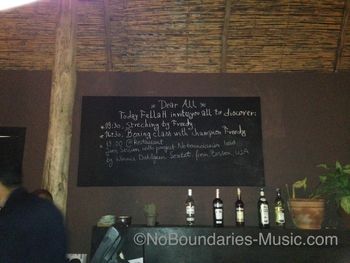 Dear All
Today Fellah invites you all to discover:
* 09:30, Streching by Freedy
* 16:30, Boxing class with champion Freedy
* 19:00 @Restaurant
Jam Session with project Noboundaries lead
by Dahlgren Sextet. from Boston, USA
©NoBoundaries-Music.com